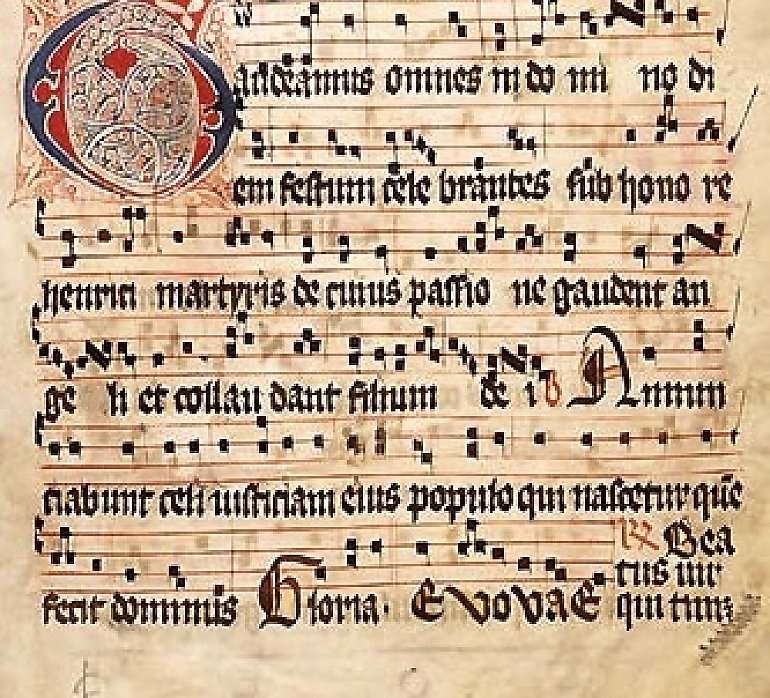 Gaudeamus omnes in do mi no di
em festum cele brantes sub hono re
henrici martyris de cuius passio ne gaudent an
ge li et collau dant filium de i v Annun
ciabunt celi iusticiam eius populo qui nascetur que
fecit dominus Gloria. EVOVAE
R Bea
tus uir
qui tim